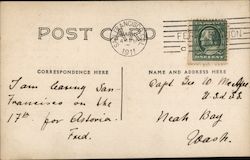 POST CARD
SAN FRANCISCO, CAL.
1911
CORRESPONDENCE HERE
NAME AND ADDRESS HERE
I am leaving San-
Francisco on the
17th for Astoria.
Fred.
Capt. Geo. W.
Neah Bay
Wash.